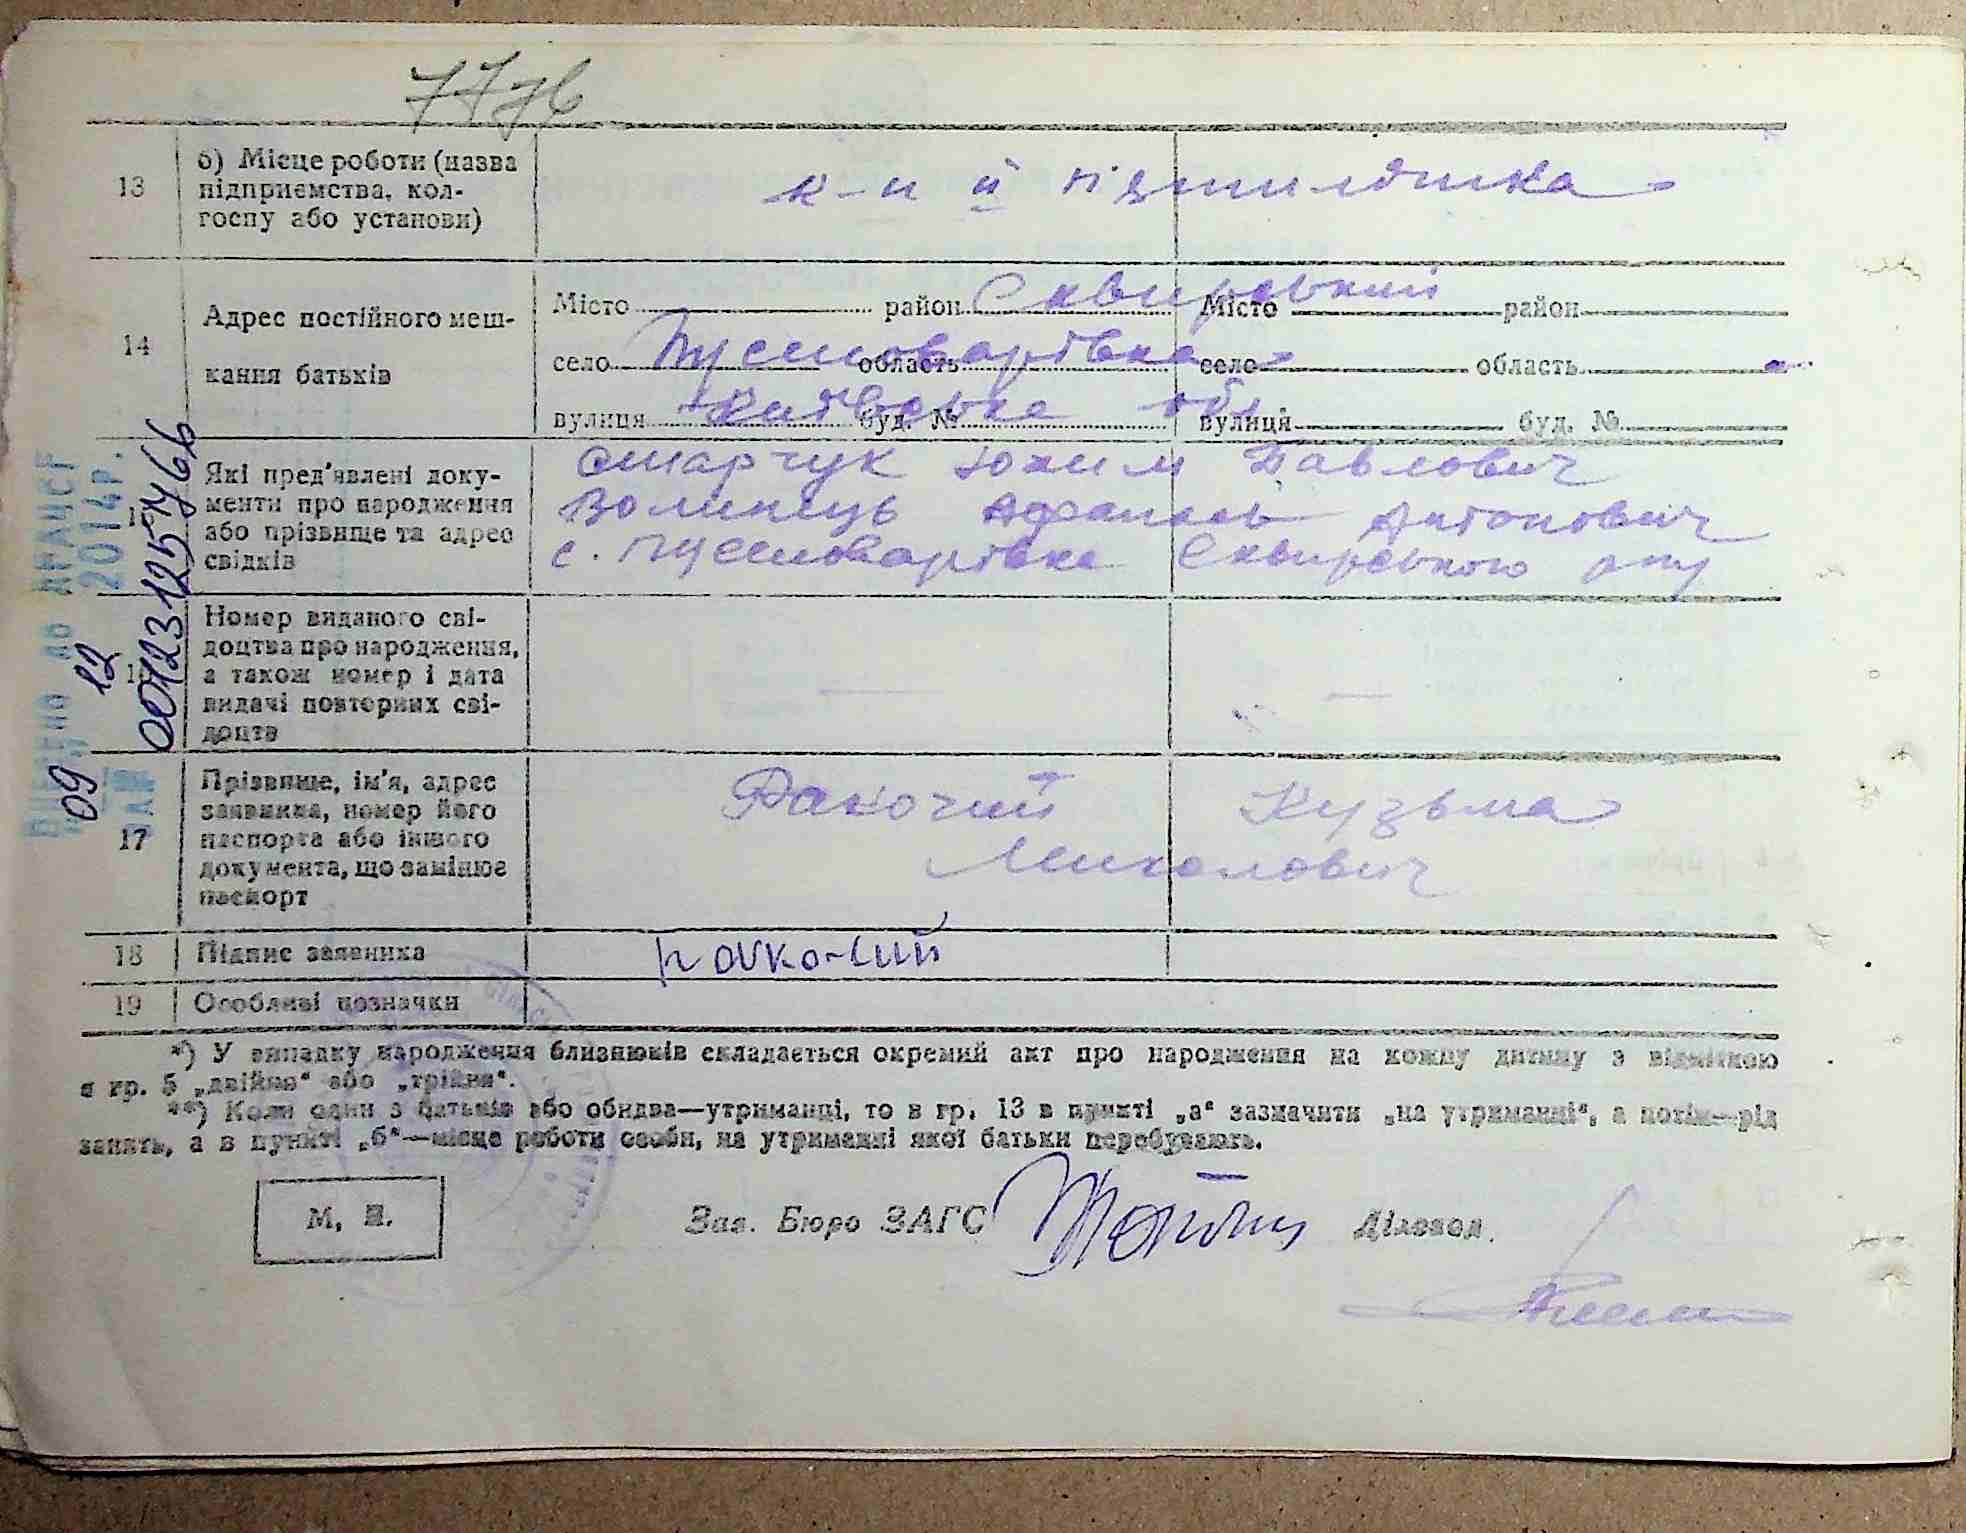 7776
13
б) Місце роботи (назва
підприємства, кол-
госпу або установи)
к-п й п'ятилітка
14
Адрес постійного меш-
кання батьків
Місто район Сквирський Місто район
село Пустоварівка область село область
вулиця Київська обл. буд. № вулиця буд. №
Які пред'явлені доку-
менти про народження
або прізвище та адрес
свідків
Старчук Юхим Павлович
Волинець Афанасій Антонович
с. Пустоварівка Сквирського р-ну
Номер виданого сві-
доцтва про народження,
а також номер і дата
видачі повторних сві-
доцтв
17
Прізвище, ім'я, адрес
заявника, номер його
паспорта або іншого
документа, що замінює
паспорт
Ракочий Кузьма
Миколович
18
Підпис заявника
Ракочий
19
Особливі позначки
*) У випадку народження близнюків складається окремий акт про народження на кожну дитину з відміткою
в гр. 5 „двійня“ або „трійня“.
**) Коли один з батьків або обидва—утриманці, то в гр. 13 в пункті „а“ зазначити „на утриманні“, а потім—рід
занять, а в пункті „б“—місце роботи особи, на утриманні якої батьки перебувають.
М. П.
Зав. Бюро ЗАГС
Діловод.
Внесено до ДРАЦСГ
09 12 2014р.
00123125766